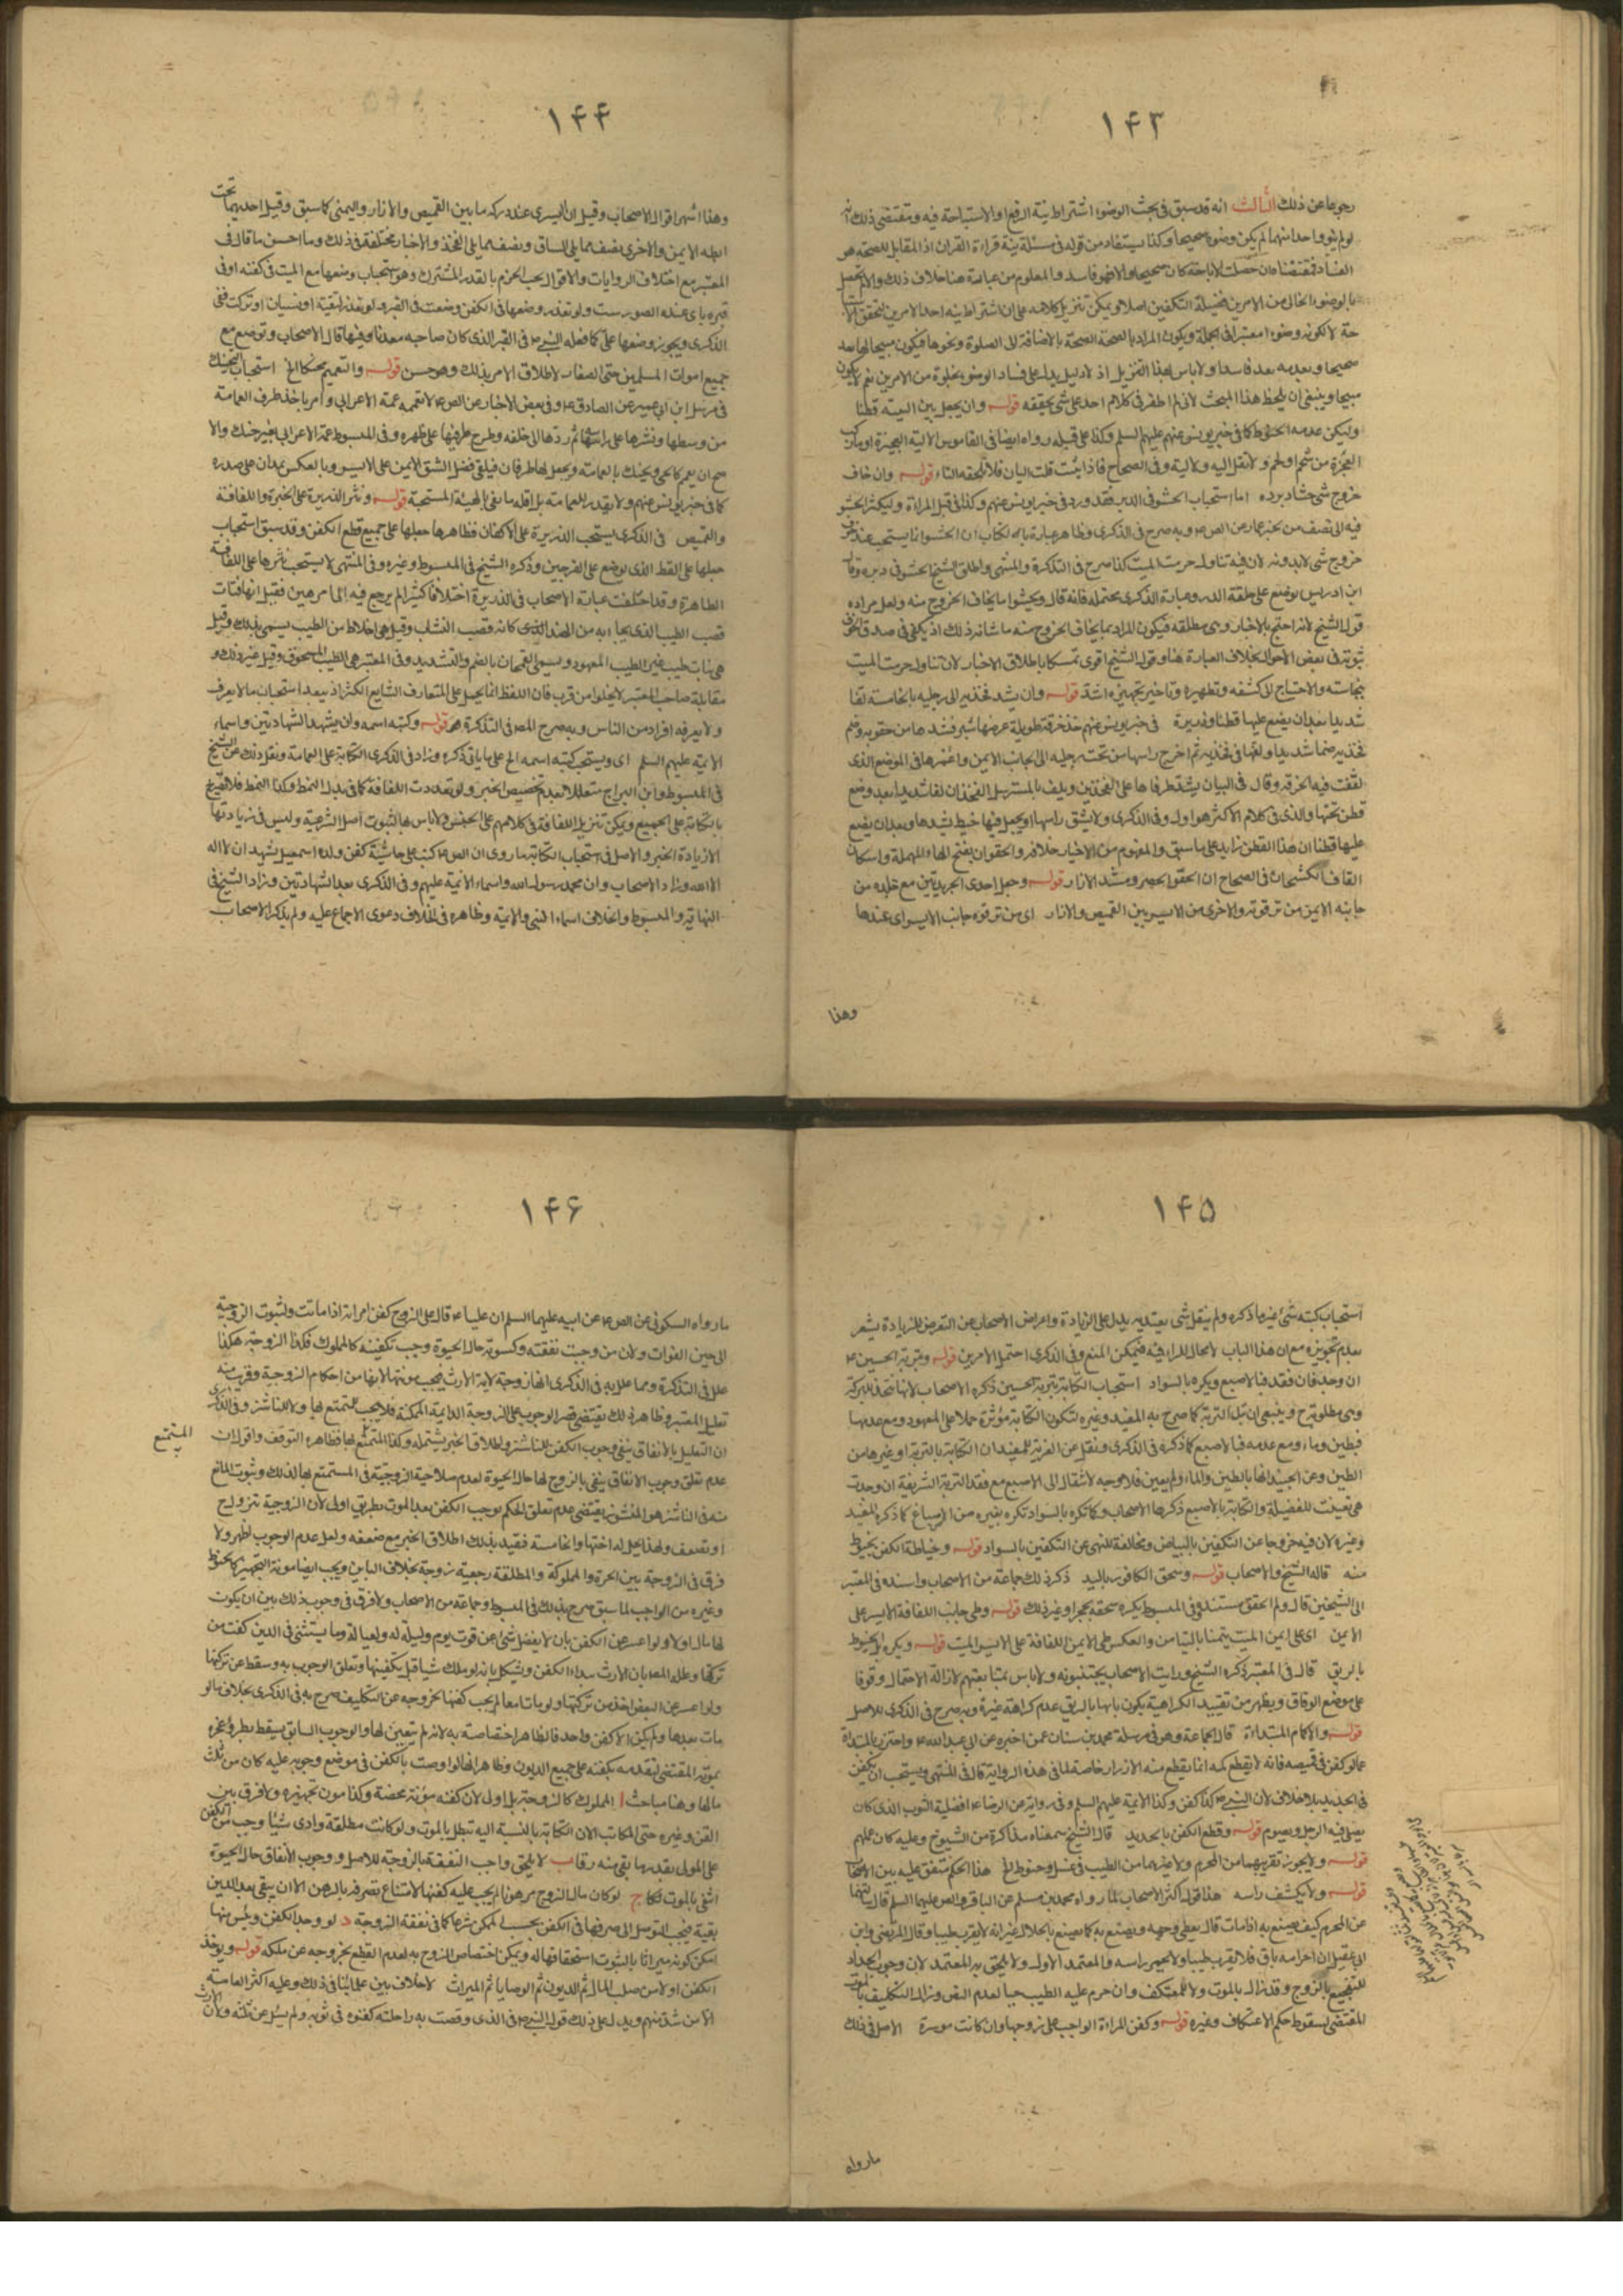 ۱۴۳
رجوعا عن ذلك الثالث انه قد سبق في بحث الوضوء اشتراط نية الرفع او الاستباحة فيه ومقتضى ذلك انه
لو لم ينو واحدا منهما لم يكن وضوءه صحيحا وكذا يستفاد من قوله في مسئلة نية قراءة القران اذ المقابل للصحة هو
الفساد فمقتضاه ان حصلت الاباحة كان صحيحا والا فهو فاسد والمعلوم من عبارته هنا خلاف ذلك والا لم تحصل
بالوضوء الخالي من الامرين فضيلة التكفين اصلا ويمكن تنزيل كلامه على ان اشتراط نية احد الامرين لتحقق الاستبا
حة لا لكونه وضوءا معتبرا في الجملة ويكون المراد بالصحة الصحة بالاضافة الى الصلوة ونحوها فيكون مبيحا لها بعد
صحيحا وبعدمه بعد فاسدا ولا باس بهذا التنزيل اذ لا دليل يدل على فساد الوضوء بخلوه من الامرين نعم لا يكون
مبيحا وينبغي ان يلحظ هذا المبحث لاني لم اظفر في كلام احد على شئ يحققه قوله وان يجعل بين اليتيه قطنا
وليكن عدمه الحنوط كما في خبر يونس عنهم عليهم السلم وكذا على قبله رواه ايضا في القاموس الالية العجيزة او ما ركب
العجز من شحم ولحم ولا تقل الية ولا لية وفي الصحاح فاذا ثنيت قلت اليان فلا تلحقه التاء قوله وان خاف
خروج شئ حشا دبره اما استحباب الحشو في الدبر فقد ورد في خبر يونس عنهم وكذا في قبل المراة وليكثر الحشو
فيه الى نصف من بخبر عمار عن الص ع وبه صرح في الذكرى وظاهر عبارة الكتاب ان الحشو انما يستحب عند خوف
خروج شئ لا بدونه لان فيه تناول حرمة الميت كذا صرح في التذكرة والمنتهى واطلق الشيخ الحشو في دبره وقال
ابن ادريس يوضع على حلقة الدبر وعبارة الذكرى محتملة فانه قال ويحشو ما يخاف الخروج منه ولعل مراده
قول الشيخ لانه احتج بالاخبار وهي مطلقه فيكون المراد بما يخاف الخروج منه ما شانه ذلك اذ يكفي في صدق الخوف
ثبوته في بعض الاحوال بخلاف العبارة هنا وقول الشيخ اقوى تمسكا باطلاق الاخبار لان تناول حرمة الميت
بنجاسته والاحتياج الى كشفه وتطهيره وتاخير تجهيزه اشد قوله وان يشد فخذيه الى رجليه بالخامسة لفا
شديدا بعد ان يضع عليها قطنا وذريرة في خبر يونس عنهم خذ خرقة طويلة عرضها شبر فشدها من حقويه وضم
فخذيه ضما شديدا ولفها في فخذيه ثم اخرج راسها من تحت رجليه الى جانب الايمن واغمزها في الموضع الذي
لففت فيه الخرقة وقال في البيان يشد طرفاها على الفخذين ويلف بالمسترسل الفخذان لفا شديدا بعد وضع
قطن تحتها والذي في كلام الاكثر هو الاول وفي الذكرى ولا يشق راسها او يجعل فيها خيط يشدها وبعد ان يضع
عليها قطنا ان هذا القطن زايد على ما سبق والمفهوم من الاخبار خلافه والحقوان بفتح الحاء المهملة واسكان
القاف الكشحان في الصحاح ان الحقو الخصر ومشد الازار قوله وجعل احدى الجريدتين مع جلده من
جانبه الايمن من ترقوته والاخرى من الايسر بين القميص والازار اي من ترقوه جانب الايسر اي عندها
وهذا
۱۴۴
وهذا اشهر اقوال الاصحاب وقيل ان اليسرى عند وركه ما بين القميص والازار واليمنى كما سبق وقيل احديهما تحت
ابطه الايمن والاخرى نصف مما يلي الساق ونصف مما يلي الفخذ والاخبار مختلفة في ذلك وما احسن ما قال في
المعتبر مع اختلاف الروايات والاقوال يجب الجزم بالقدر المشترك وهو استحباب وضعها مع الميت في كفنه او في
قبره باي هذه الصور شئت ولو تعذر وضعها في الكفن وضعت في القبر ولو تعذر لتقية او نسيان او تركت ففي
الذكرى ويجوز وضعها على كما فعله النبي ص في القبر الذي كان صاحبه معذبا وفيها قال الاصحاب وتوضع مع
جميع اموات المسلمين حتى الصغار لاطلاق الامر بذلك وهو حسن قوله والتعميم محنكا الخ استحباب التحنيك
في مرسل ابن ابي عمير عن الصادق ع وفي بعض الاخبار عن الص ع لا تعممه عمة الاعرابي وامر باخذ طرف العمامة
من وسطها ونشرها على راسه ثم ردها الى خلفه وطرح طرفيها على ظهره وفي المبسوط عمة الاعرابي بغير حنك والا
صح ان يعم كالحي ويحنك بالعمامة ويجعل لها طرفان فيلقى فضل الشق الايمن على الايسر وبالعكس يمدان على صدره
كما في خبر يونس عنهم ولا يقدر للعمامة بل اقله ما يفي بالهيئة المستحبة قوله ونثر الذريرة على الحبرة واللفافة
والقميص في الذكرى يستحب الذريرة على الاكفان فظاهرها جعلها على جميع قطع الكفن وقد سبق استحباب
جعلها على القطن الذي يوضع على الفرجين وذكره الشيخ في المبسوط وغيره وفي المنتهى لا يستحب نثرها على اللفافة
الظاهرة وقد اختلفت عبارة الاصحاب في الذريرة اختلافا كثيرا لم يرجع فيه الى ما مر هين فقيل انها فتات
قصب الطيب الذي يجاء به من الهند الذي كانه قصب النشاب وقيل هي اخلاط من الطيب يسمى بذلك وقيل
هي نبات طيب غير الطيب المعهود ويسمى القمحان بالضم والتشديد وفي المعتبر هي الطيب المسحوق وقيل غير ذلك و
مقابلة صاحب المعتبر لا يخلوا من قرب فان اللفظ انما يحمل على المتعارف الشايع الكثير اذ يبعد استحباب ما لا يعرف
ولا يعرفه افراد من الناس وبه صرح المص في التذكرة هو قوله وكتبه اسمه وان يشهد الشهادتين واسماء
الائمة عليهم السلم اي ويستحب كتبه اسمه الخ على ما ياتي ذكره وزاد في الذكرى الكتابة على العمامة ونقل ذلك عن الشيخ
في المبسوط وابن البراج متعللا بعدم تخصيص الخبر ولو تعددت اللفافة كما في بدل النمط وكذا النمط فلا تصريح
بالكتابة على الجميع ويمكن تنزيل اللفافة في كلامهم على الجنس ولا باس بها لثبوت اصل الشرعية وليس في زيادتها
الا زيادة الخير والاصل في استحباب الكتابة ما روى ان الص ع كتب على حاشية كفن ولده اسمعيل يشهد ان لا اله
الا الله وزاد الاصحاب وان محمدا رسول الله واسماء الائمة عليهم وفي الذكرى بعد الشهادتين وزاد الشيخ في
النهاية والمبسوط والخلاف اسماء النبي والائمة وظاهره في الخلاف دعوى الاجماع عليه ولم يذكر الاصحاب
۱۴۵
استحباب كتبه شئ غير ما ذكره ولم ينقل شئ يعتد به يدل على الزيادة واعراض الاصحاب عن التعرض للزيادة يشعر
بعدم تجويزه مع ان هذا الباب لا مجال للراي فيه فيمكن المنع وفي الذكرى احتمل الامرين قوله وبتربة الحسين ع
ان وجد فان فقد فبالاصبع ويكره بالسواد استحباب الكتابة بتربة الحسين ذكره الاصحاب لانها تتخذ للبركة
وهي مطلوبة ح وينبغي ان تبل التربة كما صرح به المفيد وغيره لتكون الكتابة مؤثرة حملا على المعهود ومع عدمها
فبطين وماء ومع عدمه فبالاصبع كما ذكره في الذكرى ونقل عن الغرية للمفيد ان الكتابة بالتربة او غيرها من
الطين وعن الجنيد انها بالطين والماء ولم يعين فلا وجه لانتقال الى الاصبع مع فقد التربة الشريفة ان وجدت
هي تعينت للفضيلة والكتابة بالاصبع ذكرها الاصحاب وكما تكره بالسواد تكره بغيره من الاصباغ كما ذكره المفيد
وغيره لان فيه خروجا عن التكفين بالبياض ومخالفة للنهي عن التكفين بالسواد قوله وخياطة الكفن بخيوط
منه قاله الشيخ والاصحاب قوله وسحق الكافور باليد ذكر ذلك جماعة من الاصحاب واسنده في المعتبر
الى الشيخين قال ولم اتحقق مستنده وفي المبسوط يكره سحقه بحجر او غير ذلك قوله وطي جانب اللفافة الايسر على
الايمن اي على ايمن الميت يتمنا بالتيامن والعكس طي الايمن اللفافة على الايسر الميت قوله ويكره بل الخيوط
بالريق قال في المعتبر ذكره الشيخ ورايت الاصحاب يجتنبونه ولا باس بمتابعتهم لازالة الاحتمال ووقوفا
على موضع الوفاق ويظهر من تقييد الكراهية بكون بلها بالريق عدم كراهة غيره وبه صرح في الذكرى للاصل
قوله والاكمام المبتداة قال الجماعة وهو في مرسلة محمد بن سنان عمن اخبره عن ابي عبد الله ع واحترز بالمبتداة
عما لو كفن في قميصه فانه لا يقطع كمه انما يقطع منه الازرار خاصة لما في هذه الرواية قال في المنتهى ويستحب ان يكفن
في الجديد بلا خلاف لان النبي ص كذا كفن وكذا الائمة عليهم السلم وفي رواية عن الرضا ع افضلية الثوب الذي كان
يصلي فيه الرجل ويصوم قوله وقطع الكفن بالحديد قال الشيخ سمعناه مذاكرة من الشيوخ وعليه كان عملهم
قوله ولا يجوز تقريبهما من المحرم ولا غيرهما من الطيب في غسل وحنوط الخ هذا الحكم متفق عليه بين الاصحاب
قوله ولا يكشف راسه هذا قول اكثر الاصحاب لما رواه محمد بن مسلم عن الباقر والص عليهما السلم قال سالتهما
عن المحرم كيف يصنع به اذا مات قال يغطى وجهه ويصنع به كما يصنع بالحلال غير انه لا يقرب طيبا وقال المرتضى وابن
ابي عقيل ان احرامه باق فلا يقرب طيبا ولا يخمر راسه والمعتمد الاول ولا يلحق به المعتمد لان وجوب الحداد
للتفجع بالزوج وقد زال بالموت ولا المعتكف وان حرم عليه الطيب حيا لعدم النص وزوال التكليف بالموت
المقتضى لسقوط حكم الاعتكاف وغيره قوله وكفن المراة الواجب على زوجها وان كانت موسرة الاصل في ذلك
ما رواه
۱۴۶
ما رواه السكوني عن الص ع عن ابيه عليهما السلم ان عليا ع قال على الزوج كفن امراته اذا ماتت ولثبوت الزوجية
الى حين الفوات ولان من وجبت نفقته وكسوته حال الحيوة وجب تكفينه كالمملوك فكذا الزوجة هكذا
علل في التذكرة ومما علل به في الذكرى انها زوجة لاية الارث فيجب مؤنتها لانها من احكام الزوجية وقريب منه
تعليل المعتبر وظاهر ذلك يقتضي قصر الوجوب على الزوجة الدائمة الممكنة فلا يجب للمتمتع بها ولا للناشز وفي الذكرى
ان التعليل بالانفاق ينفي وجوب الكفن للناشز واطلاق الخبر يشتمله وكذا المتمتع بها فظاهره التوقف واقول ان
المستمتع
عدم تعلق وجوب الانفاق ينفي بالزوج لها حال الحيوة لعدم صلاحية الزوجية في المستمتع بها لذلك وثبوت المانع
منه في الناشز هو النشوز يقتضي عدم تعلق الحكم بوجوب الكفن بعد الموت بطريق اولى لان الزوجية تتزلزل ح
او تضعف ولهذا يحل له اختها والخامسة فقيد بذلك اطلاق الخبر مع ضعفه ولعل عدم الوجوب اظهر ولا
فرق في الزوجة بين الحرة والمملوكة والمطلقة رجعية زوجة بخلاف الباين ويجب ايضا مونة التجهيز كالحنوط
وغيره من الواجب لما سبق صرح بذلك في المبسوط وجماعة من الاصحاب ولا فرق في وجوب ذلك بين ان يكون
لها مال اولا ولو اعسر عن الكفن بان لا يفضل شئ عن قوت يوم وليلة له ولعياله وما يستثنى في الدين كفنت من
تركتها وعلله المص بان الارث بعد الكفن ويشكل بانه لو ملك شيا قبل تكفينها وتعلق الوجوب به وسقط عن تركتها
ولو اعسر عن البعض اخذ من تركتها ولو ماتا معا لم يجب كفنها لخروجه عن التكليف صرح به في الذكرى بخلاف ما لو
مات بعدها ولم يكن الا كفن واحد فالظاهر اختصاصه به لانه لم يتعين لها والوجوب السابق يسقط بطرو عجزه
بموته المقتضى لتقدمه بكفنه على جميع الديون وظاهر انها لو اوصت بالكفن في موضع وجوبه عليه كان من ثلث
مالها وهنا مباحث ا المملوك كالزوجة بل اولى لان كفنه مؤنة محضة وكذا مون تجهيزه ولا فرق بين
القن وغيره حتى المكاتب الان الكتابة بالنسبة اليه تبطل بالموت ولو كانت مطلقة وادى شيئا وجب من الكفن
على المولى بقدر ما بقي منه رقا ب لا يلحق واجب النفقة بالزوجة للاصل ووجوب الانفاق حال الحيوة
انتفى بالموت فكا ج لو كان مال الزوج مرهونا لم يجب عليه كفنها لامتناع تصرفه بالرهن الا ان يبقى بعد الدين
بقية فيجب التوصل الى صرفها في الكفن بحسب الممكن شرعا كما في نفقة الزوجة د لو وجد الكفن ويئس منها
امكن كونه ميراثا بالثبوت استحقاقها له ويمكن اختصاص الزوج به لعدم القطع بخروجه عن ملكه قوله ويؤخذ
الكفن اولا من صلب المال ثم الديون ثم الوصايا ثم الميراث لا خلاف بين علمائنا في ذلك وعليه اكثر العامة
الا من شذ منهم ويدل على ذلك قول النبي ص في الذي وقصت به راحلته كفنوه في ثوبه ولم يسئل عن ثلثه ولان الارث